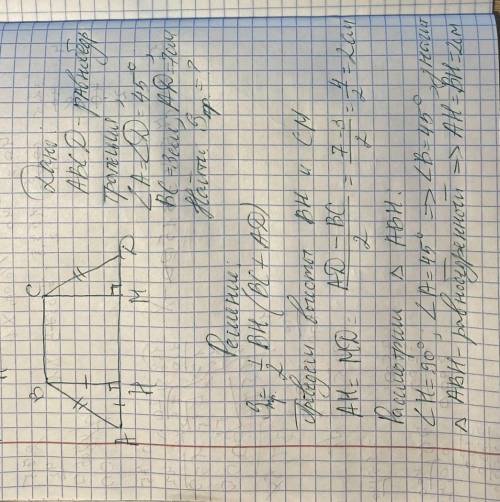 B
C
A
H
M
D
Дано:
ABCD - равнобедр
трапеция,
∠A=∠D=45°,
BC=3см, AD=7см
Найти Sтр. = ?
Решение:
Sтр. = 1/2 BH (BC + AD)
Проведем высоты BH и CM
AH = MD = (AD - BC)/2 = (7-3)/2 = 4/2 = 2см
Рассмотрим △ ABH.
∠H=90°, ∠A=45° => ∠B=45°,
△ ABH - равнобедренный => AH=BH=2см